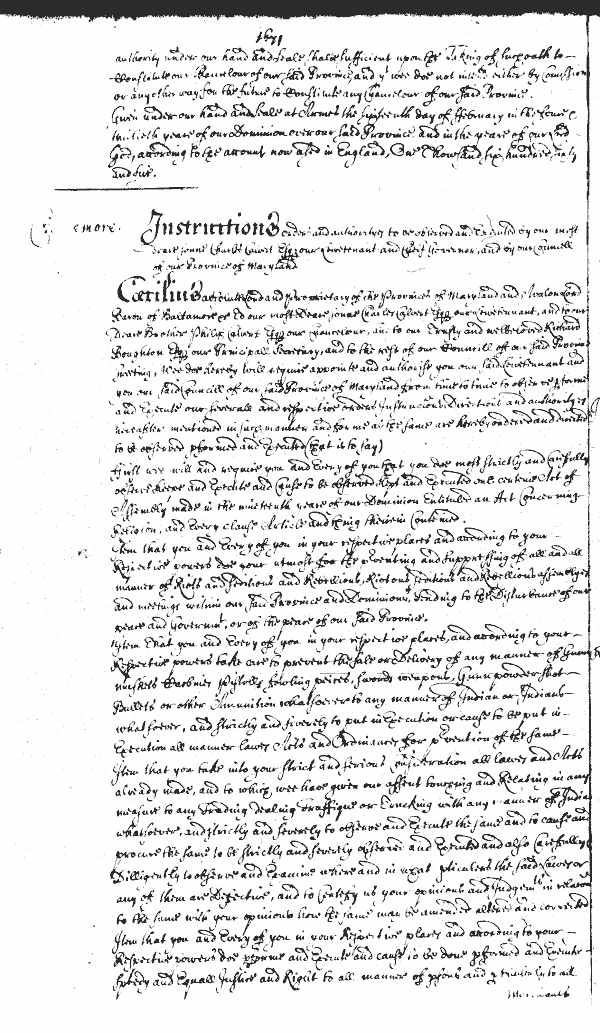 1671
authority under our hand and seale shalbe sufficient upon the taking of such oath to
Constitute our Chancelour of our said Province and yt wee doe not intend either by Comission
or any other way for the future to Constitute any Chancelour of our said Province.
Given under our hand and seale at Armes the sixteenth day of ffebruary in the foure &
thirtieth yeare of our Dominion over our said Province and in the yeare of our Lord
God, according to the account now used in England, One Thousand six hundred sixty
and five.
Instructions orders and authorityes to be observed and executed by our most
deare sonne Charles Calvert Esqr our Lieutenant and Cheif Governor, and by our Councell
of our Province of Maryland
Cæcilius absolute Lord and Proprietary of the Provinces of Maryland and Avalon Lord
Baron of Baltamore &c To our most Deare sonne Charles Calvert Esqr our Lieutennant, and to our
Deare Brother Philip Calvert Esqr our Chancelour, and to our Trusty and welbeloved Richard
Boughton Esqr our Principall Secretary, and to the rest of our Councill of our said Province
Greeting, Wee doe hereby will require appointe and authorise you our said Lieutennant and
you our said Councill of our said Province of Maryland from time to time to observe pforme
and Execute our severall and respective orders Instructions Directions and authorityes
hereafter mentioned in such manner and forme as the same are hereby ordered and directed
to be observed pformed and Executed (that is to say)
ffirst wee will and require you and Every of you that you doe most strictly and carefully
observe keepe and Execute and Cause to be observed kept and Executed one certeine Act of
Assembly made in the nineteenth yeare of our Dominion Entituled an Act Concerning
Religion, and Every Clause Article and thing therein Conteined.
Item that you and Every of you in your respective places and according to your
Respective powers doe your utmost for the pventing and suppressing of all and all
manner of Riots and seditions and Rebellions, Riotous seditious and Rebellious assemblyes
and meetings within our said Province and Dominions, tending to the Disturbance of our
peace and Governmt, or of the peace of our said Province.
Item that you and Every of you in your respective places, and according to your
Respective powers take care to prevent the sale or Delivery of any manner of Gunns
muskets Carbines Pystolls fowling peices, swords weapons, Gunn powder shot
Bullets or other Amunition whatsoever to any manner of Indian or Indians
whatsoever, and strictly and severely to put in Execution or cause to be put in
Execution all manner lawes Acts and Ordinances for pvention of the same
Item that you take into your strict and serious Consideration all lawes and Acts
already made, and to which wee have given our assent touching and Relating in any
measure to any Trading dealing Traffique or Trucking with any manner of Indian
whatsoever, and strictly and severely to observe and Execute the same and to cause and
procure the same to be strictly and severely observed and Executed and also Carefully &
Dilligently to observe and Examine where and in what pticulers the said lawes or
any of them are Defective, and to Certify us your opinions and Judgmts in relacon
to the same with your opinions how the same may be amended altered and corrected
Item that you and Every of you in your Respective places and according to your
Respective powers doe pforme and Execute and cause to be done pformed and Execute
speedy and Equall Justice and Right to all manner of psons and pticulerly to all
Merchants